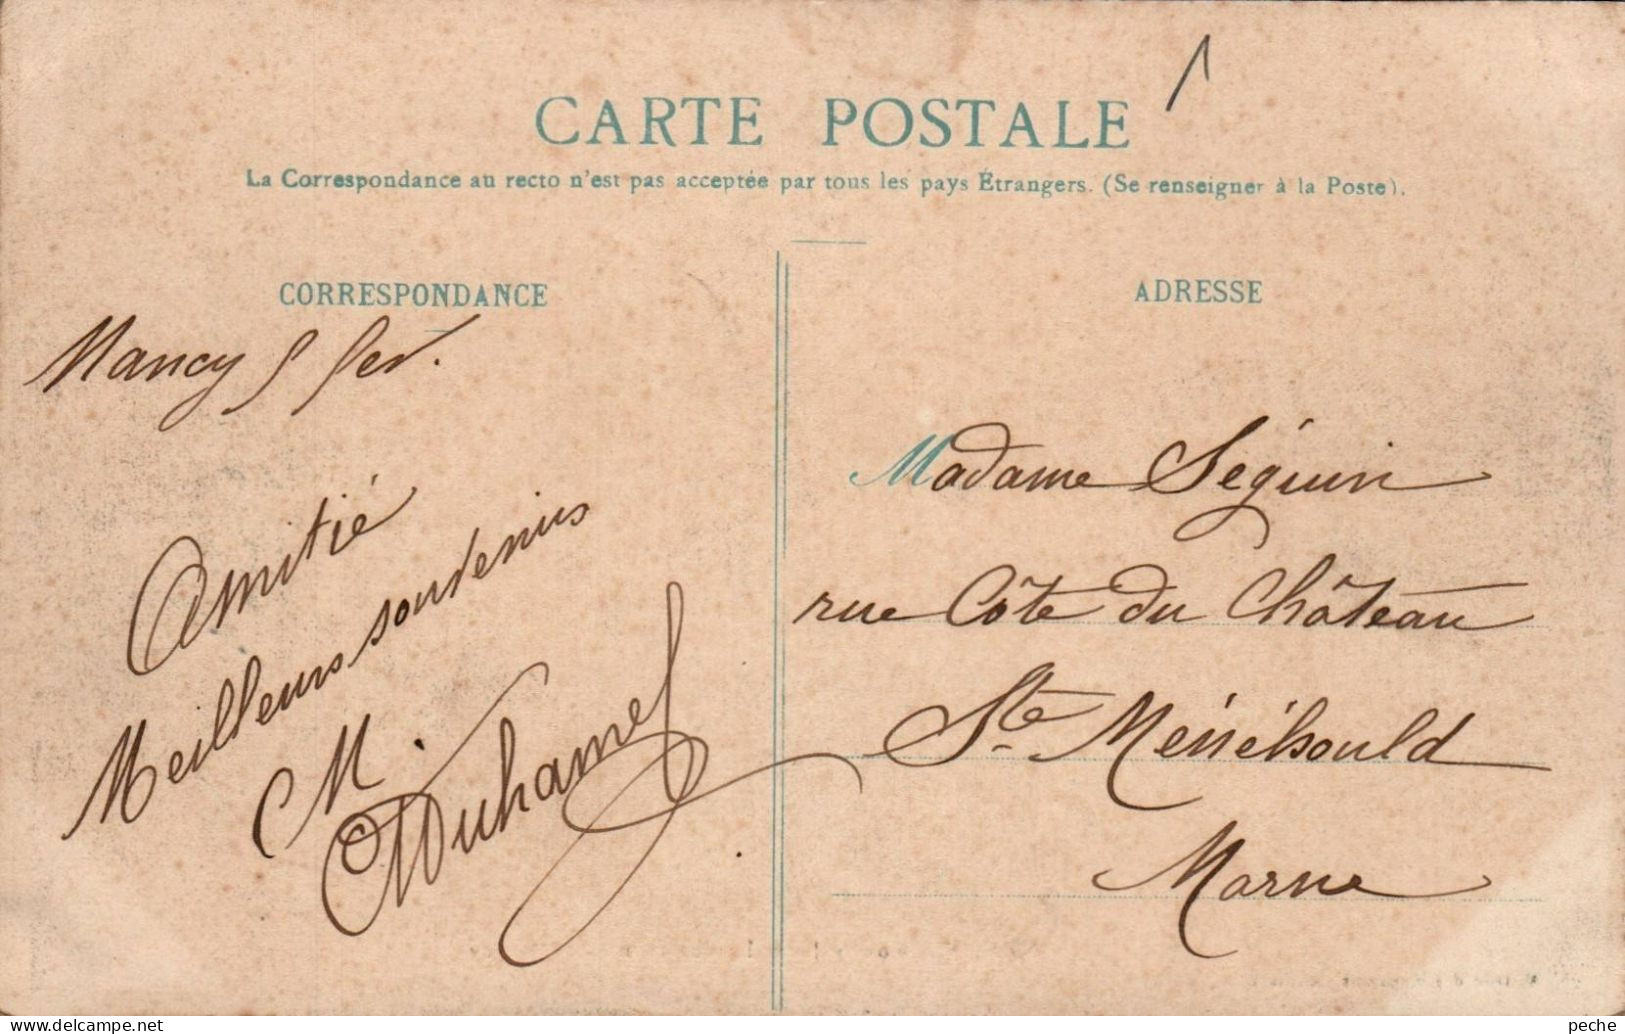 CARTE POSTALE
La Correspondance au recto n'est pas acceptée par tous les pays Étrangers. (Se renseigner à la Poste).
CORRESPONDANCE
Nancy 5 fev.
Amitié
Meilleurs souvenirs
M. Duhamel
ADRESSE
Madame Séguin
rue Côte du Château
Ste Ménéhould
Marne
delcampe.net
peche